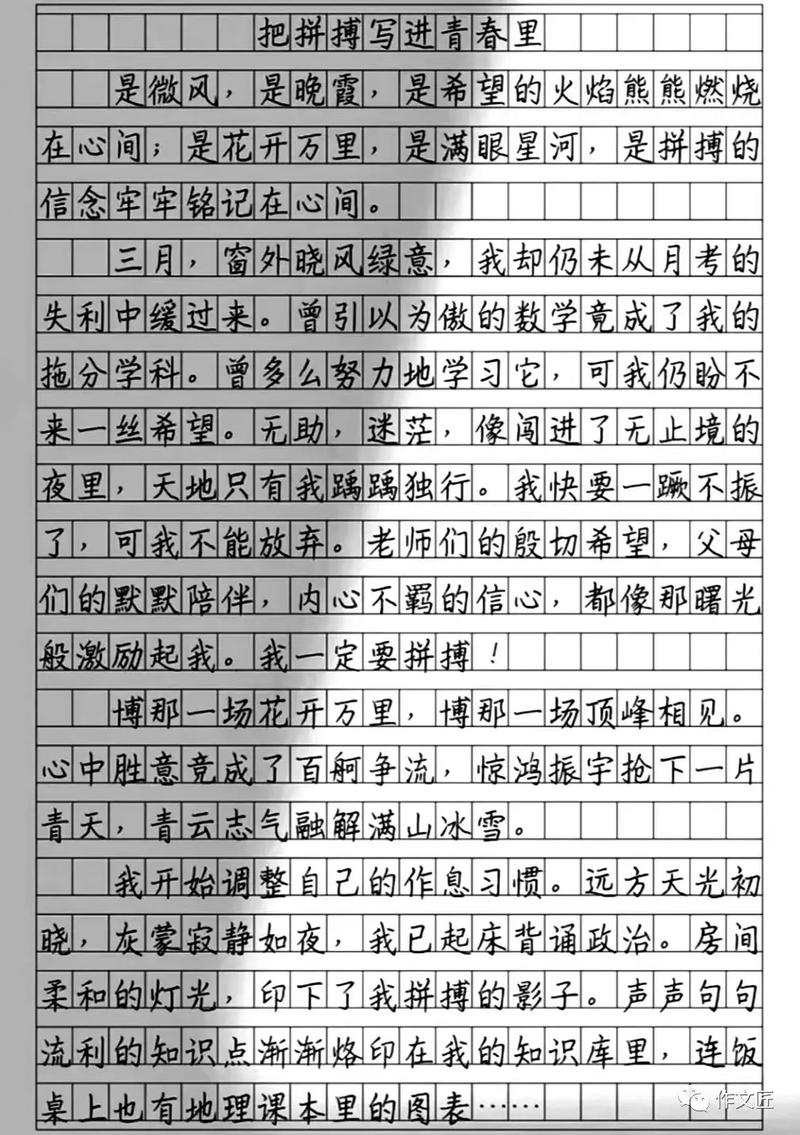 把拼搏写进青春里
是微风，是晚霞，是希望的火焰熊熊燃烧
在心间；是花开万里，是满眼星河，是拼搏的
信念牢牢铭记在心间。
三月，窗外晓风绿意，我却仍未从月考的
失利中缓过来。曾引以为傲的数学竟成了我的
拖分学科。曾多么努力地学习它，可我仍盼不
来一丝希望。无助，迷茫，像闯进了无止境的
夜里，天地只有我踽踽独行。我快要一蹶不振
了，可我不能放弃。老师们的殷切希望，父母
们的默默陪伴，内心不羁的信心，都像那曙光
般激励起我。我一定要拼搏！
博那一场花开万里，博那一场顶峰相见。
心中胜意竞成了百舸争流，惊鸿振宇抢下一片
青天，青云志气融解满山冰雪。
我开始调整自己的作息习惯。远方天光初
晓，灰蒙寂静如夜，我已起床背诵政治。房间
柔和的灯光，印下了我拼搏的影子。声声句句
流利的知识点渐渐烙印在我的知识库里，连饭
桌上也有地理课本里的图表……
作文匠